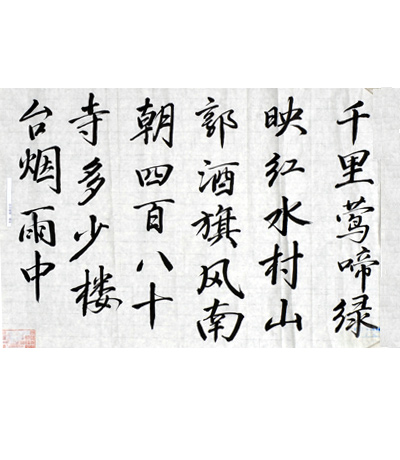 千里莺啼绿
映红水村山
郭酒旗风南
朝四百八十
寺多少楼
台烟雨中